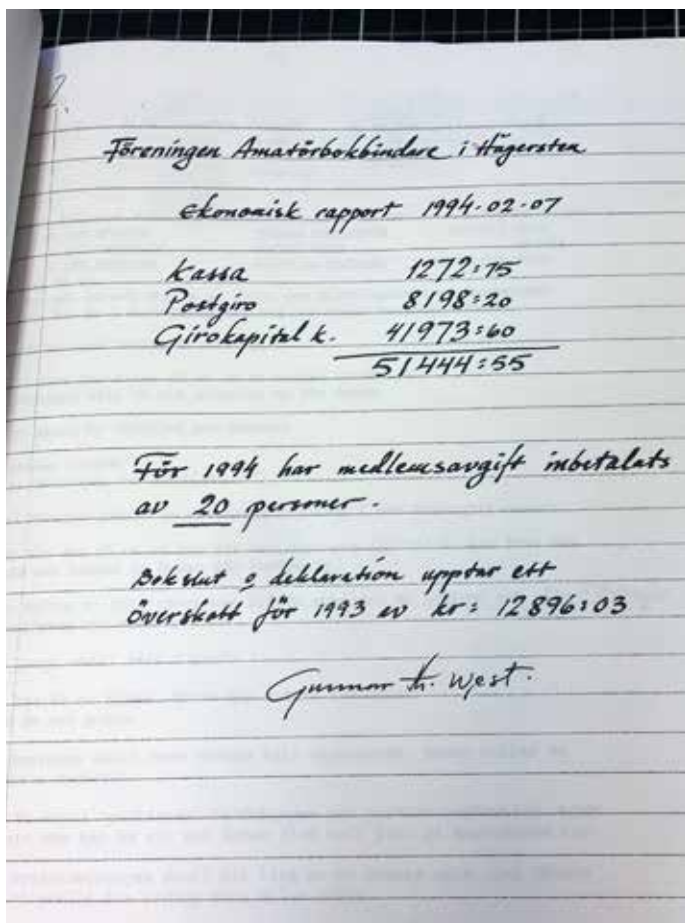 2.
Föreningen Amatörbokbindare i Hägersten
Ekonomisk rapport 1994-02-07
Kassa 1272:75
Postgiro 8198:20
Girokapital k. 41973:60
51444:55
För 1994 har medlemsavgift inbetalats
av 20 personer.
Bokslut o deklaration upptar ett
överskott för 1993 av kr: 12896:03
Gunnar th. West.